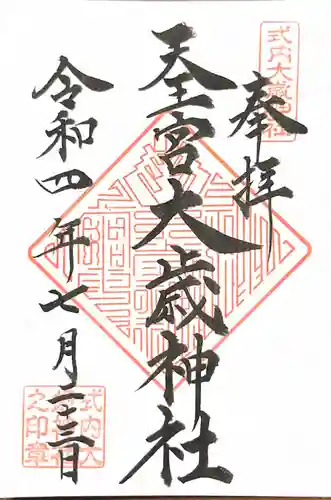 式内大歳神社
奉拝
天王宮大歳神社
令和四年七月二十三日
式内大
歳神社
之印章